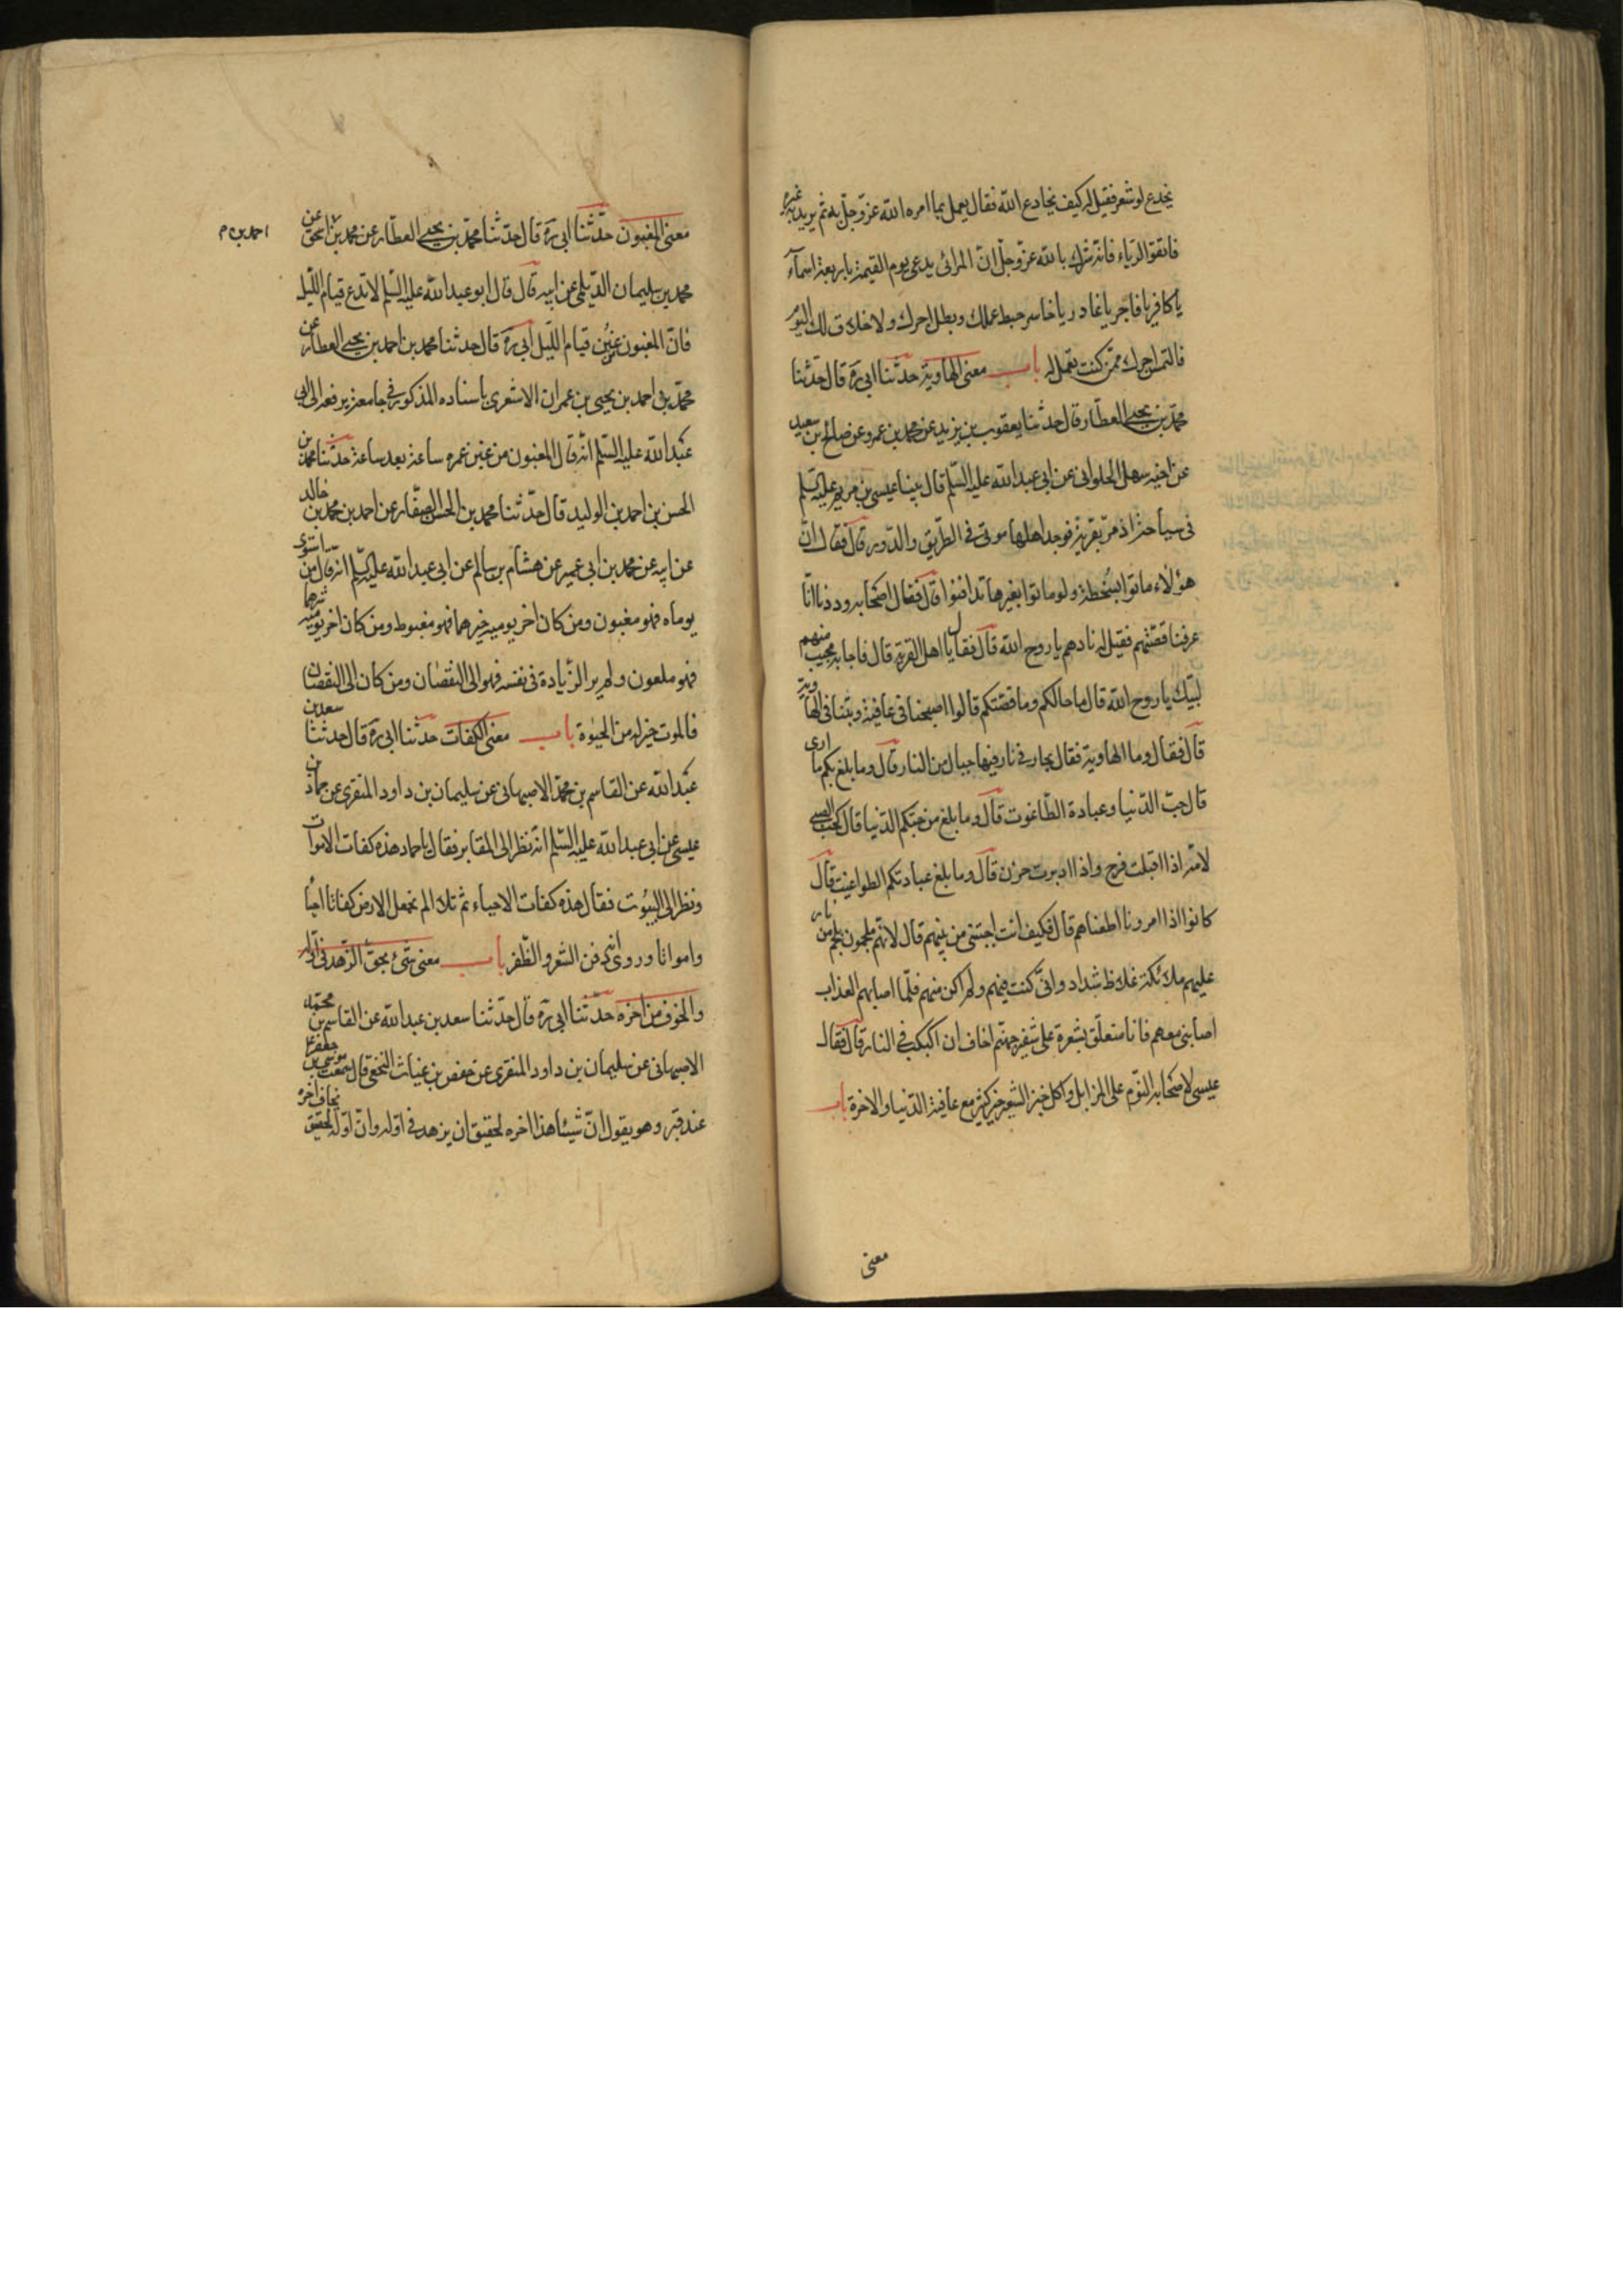 يخدع لو شعر فقيل له كيف يخادع الله فقال يعمل بما امره الله عز وجل به ثم يريد به غيره
فاتقوا الرياء فانه شرك بالله عز وجل ان المرائى يدعى يوم القيمة باربعة اسمآء
يا كافر يا فاجر يا غادر يا خاسر حبط عملك وبطل اجرك ولا خلاق لك اليوم
فالتمس اجرك ممن كنت تعمل له باب معنى الهاوية حدثنا ابى ره قال حدثنا
محمد بن يحيى العطار قال حدثنا يعقوب بن يزيد عن محمد بن عمرو عن صالح بن سعيد
عن اخيه سهل الحلوانى عن ابى عبد الله عليه السلم قال بينا عيسى بن مريم عليه السلم
فى سياحته اذ مر بقرية فوجد اهلها موتى فى الطريق والدور قال فقال ان
هؤلاء ماتوا بسخطة ولو ماتوا بغيرها تدافنوا قال فقال اصحابه وددنا انا
عرفنا قصتهم فقيل له نادهم يا روح الله قال فقال يا اهل القرية قال فاجابه مجيب منهم
لبيك يا روح الله قال ما حالكم وما قصتكم قالوا اصبحنا فى عافية وبتنا فى الهاوية
قال فقال وما الهاوية فقال بحار فى نار فيها جبال من النار قال وما بلغ بكم ما ارى
قال حب الدنيا وعبادة الطاغوت قال وما بلغ من حبكم الدنيا قال كحب الصبى
لامه اذا اقبلت فرح واذا ادبرت حزن قال وما بلغ عبادتكم الطواغيت قال
كانوا اذا امرونا اطعناهم قال فكيف انت اجبتنى من بينهم قال لانهم ملجمون بلجم من نار
عليهم ملائكة غلاظ شداد وانى كنت فيهم ولم اكن منهم فلما اصابهم العذاب
اصابنى معهم فانا متعلق بشعرة على شفير جهنم اخاف ان اكبكب فى النار قال فقال
عيسى لاصحابه النوم على المزابل واكل خبز الشعير خير كثير مع عافية الدنيا والاخرة باب
معنى
معنى المغبون حدثنا ابى ره قال حدثنا محمد بن يحيى العطار عن محمد بن اسحق عن
احمد بن م
محمد بن سليمان الديلمى عن ابيه قال قال ابو عبد الله عليه السلم لا تدع قيام الليل
فان المغبون من غبن قيام الليل ابى ره قال حدثنا محمد بن احمد بن يحيى العطار عن
محمد بن احمد بن يحيى بن عمران الاشعرى باسناده المذكور فى جامعه يرفعه الى ابى
عبد الله عليه السلم انه قال المغبون من غبن عمره ساعة بعد ساعة حدثنا محمد بن
الحسن بن احمد بن الوليد قال حدثنا محمد بن الحسن الصفار عن احمد بن محمد بن خالد
عن ابيه عن محمد بن ابى عمير عن هشام بن سالم عن ابى عبد الله عليه السلم انه قال من استوى
يوماه فهو مغبون ومن كان اخر يوميه خيرهما فهو مغبوط ومن كان اخر يوميه شرهما
فهو ملعون ولم ير الزيادة فى نفسه فهو الى النقصان ومن كان الى النقصان
فالموت خير له من الحيوة باب معنى الكفات حدثنا ابى ره قال حدثنا سعد بن
عبد الله عن القاسم بن محمد الاصبهانى عن سليمان بن داود المنقرى عن حماد بن
عيسى عن ابى عبد الله عليه السلم انه نظر الى المقابر فقال يا حماد هذه كفات الاموات
ونظر الى البيوت فقال هذه كفات الاحياء ثم تلا الم نجعل الارض كفاتا احياء
وامواتا وروى انه دفن الشعر والظفر باب معنى شىء بحق الزهد فى اوله
والخوف من اخره حدثنا ابى ره قال حدثنا سعد بن عبد الله عن القاسم بن محمد
الاصبهانى عن سليمان بن داود المنقرى عن حفص بن غياث النخعى قال سمعت موسى بن جعفر ع
عند قبر وهو يقول ان شيئا هذا اخره لحقيق ان يزهد فى اوله وان اوله لحقيق يخاف اخره